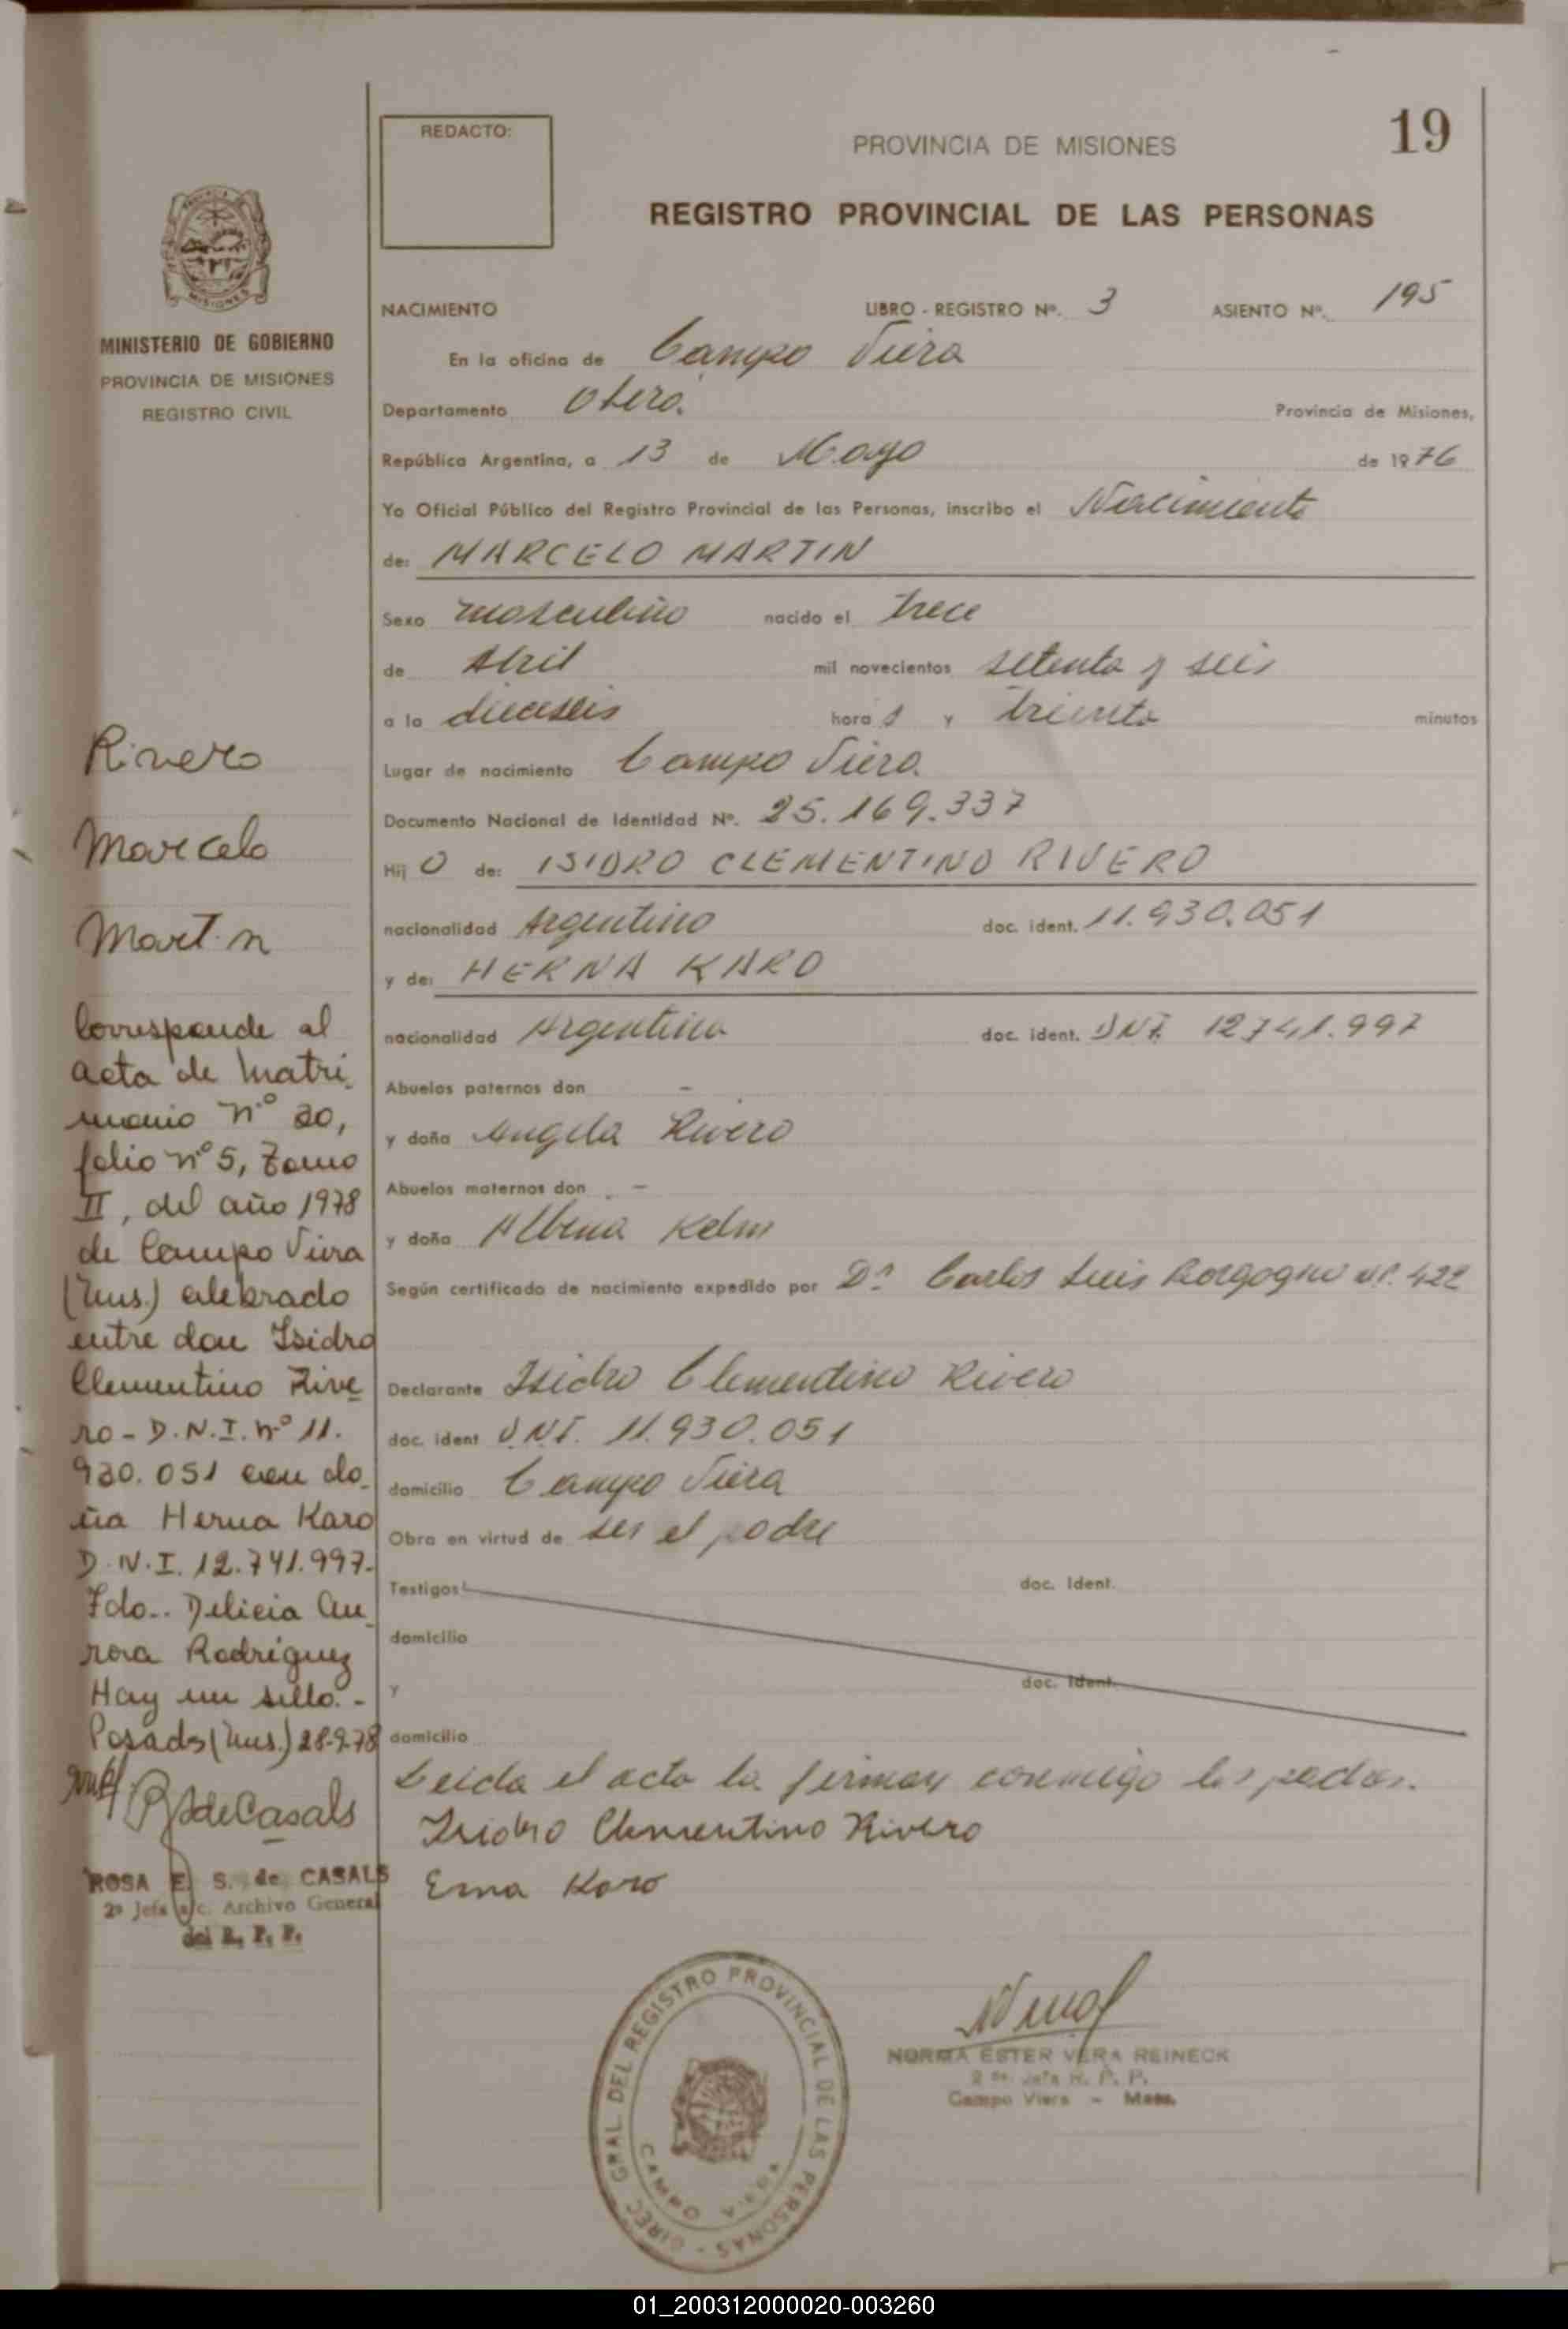 19
REDACTO:
PROVINCIA DE MISIONES
REGISTRO PROVINCIAL DE LAS PERSONAS
MISIONES
MINISTERIO DE GOBIERNO
PROVINCIA DE MISIONES
REGISTRO CIVIL
NACIMIENTO LIBRO - REGISTRO Nº. 3 ASIENTO Nº. 195
En la oficina de Campo Viera
Departamento Oberá. Provincia de Misiones,
República Argentina, a 13 de Mayo de 1976
Yo Oficial Público del Registro Provincial de las Personas, inscribo el Nacimiento
de: MARCELO MARTIN
Sexo masculino nacido el trece
de Abril mil novecientos setenta y seis
a la dieciseis hora s y treinta minutos
Lugar de nacimiento Campo Viera.
Documento Nacional de Identidad Nº. 25.169.337
Hij O de: ISIDRO CLEMENTINO RIVERO
nacionalidad Argentino doc. ident. 11.930.051
y de: HERNA KARO
nacionalidad Argentina doc. ident. DNI. 12.741.997
Abuelos paternos don -
y doña Angela Rivero
Abuelos maternos don -
y doña Albina Kelm
Según certificado de nacimiento expedido por Dr. Carlos Luis Borgogno M.P. 422
Declarante Isidro Clementino Rivero
doc. ident D.N.I. 11.930.051
domicilio Campo Viera
Obra en virtud de ser el padre
Testigos doc. Ident.
domicilio
y doc. Ident.
domicilio
Leida el acta la firman conmigo los padres.
Isidro Clementino Rivero
Erna Karo
Rivero
Marcelo
Martin
Corresponde al
acta de matri
monio nº 20,
folio nº 5, Tomo
II, del año 1978
de Campo Viera
(Mns.) celebrado
entre don Isidro
Clementino Rive
ro - D.N.I. nº 11.
930.051 con do
ña Herna Karo
D.N.I. 12.741.997.
Fdo.. Delicia Au
rora Rodriguez
Hay un sello. -
Posadas (Mns.) 28-9-78
RS de Casals
ROSA E. S. de CASALS
2ª Jefa a/c. Archivo General
del R. P. P.
DIREC. GRAL. DEL REGISTRO PROVINCIAL DE LAS PERSONAS -
CAMPO VIERA
NORMA ESTER VERA REINECK
Jefa R. P. P.
Campo Viera - Mnes.
01_200312000020-003260